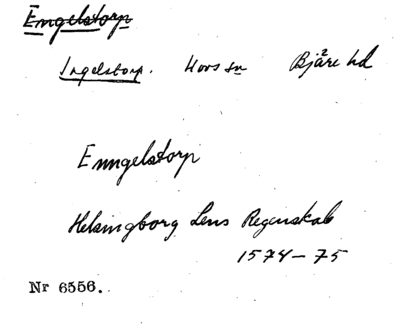 Engelstorp
Ingelstorp. Hovs sn Bjäre hd
Enngelstorp
Helsingborg Lens Regenskab
1574-75
Nr 6556.